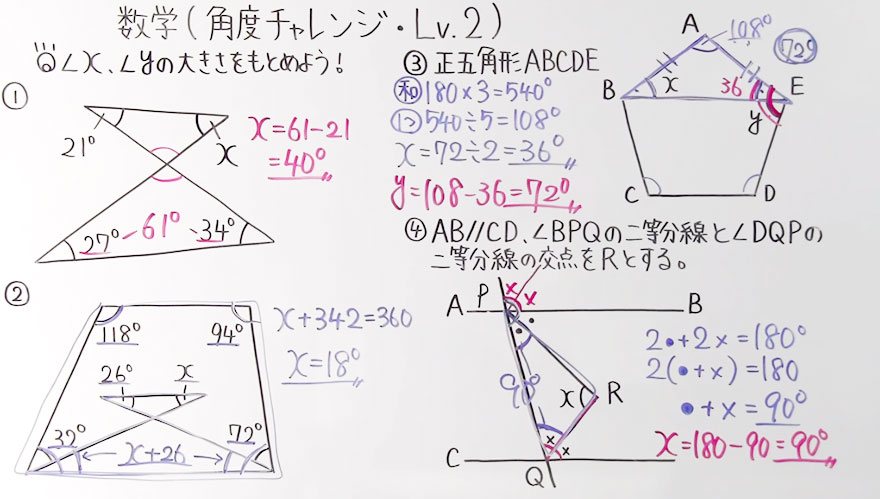 数学(角度チャレンジ・Lv.2)
∠x、∠yの大きさをもとめよう!
①
21°
x
27°-61°-34°
x=61-21
=40°
②
118°
94°
26°
x
32°
72°
x+26
x+342=360
x=18°
③ 正五角形ABCDE
和 180×3=540°
1つ 540÷5=108°
x=72÷2=36°
y=108-36=72°
A
108°
72°
B
x
36
E
y
C
D
④ AB//CD、∠BPQの二等分線と∠DQPの
二等分線の交点をRとする。
A
P
x
x
B
90°
x
R
x
x
C
Q
D
2•+2x=180°
2(•+x)=180
•+x=90°
x=180-90=90°